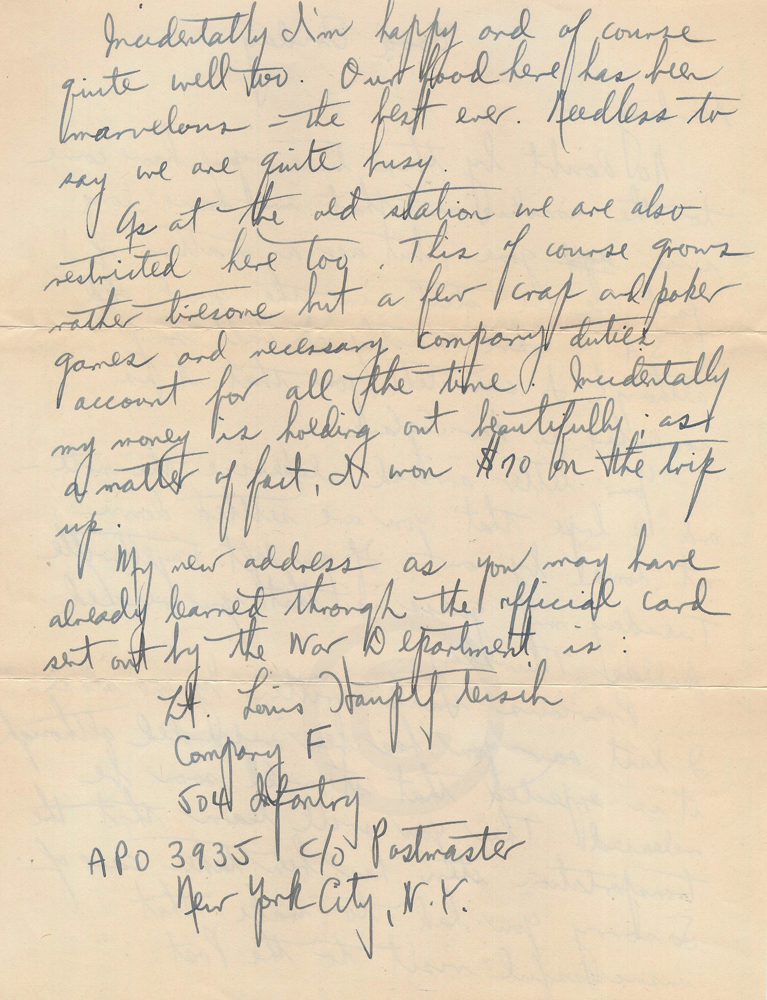 Incidentally I'm happy and of course
quite well too. Our food here has been
marvelous - the best ever. Needless to
say we are quite busy.
As at the old station we are also
restricted here too. This of course grows
rather tiresome but a few crap and poker
games and necessary company duties
account for all the time. Incidentally
my money is holding out beautifully; as
a matter of fact, I won $70 on the trip
up.
My new address as you may have
already learned through the official card
sent out by the War Department is:
Lt. Louis Hauptfleisch
Company F
504 Infantry
APO 3935 c/o Postmaster
New York City, N.Y.